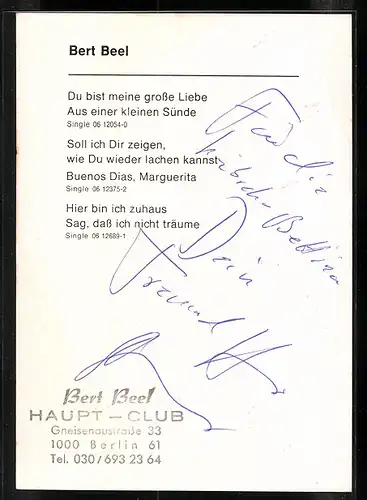 Bert Beel
Du bist meine große Liebe
Aus einer kleinen Sünde
Single 06 12054-0
Soll ich Dir zeigen,
wie Du wieder lachen kannst
Buenos Dias, Marguerita
Single 06 12375-2
Hier bin ich zuhaus
Sag, daß ich nicht träume
Single 06 12689-1
Für die
hübsche Bettina
Dein
Freund
Bert Beel
HAUPT-CLUB
Gneisenaustraße 33
1000 Berlin 61
Tel. 030/693 23 64